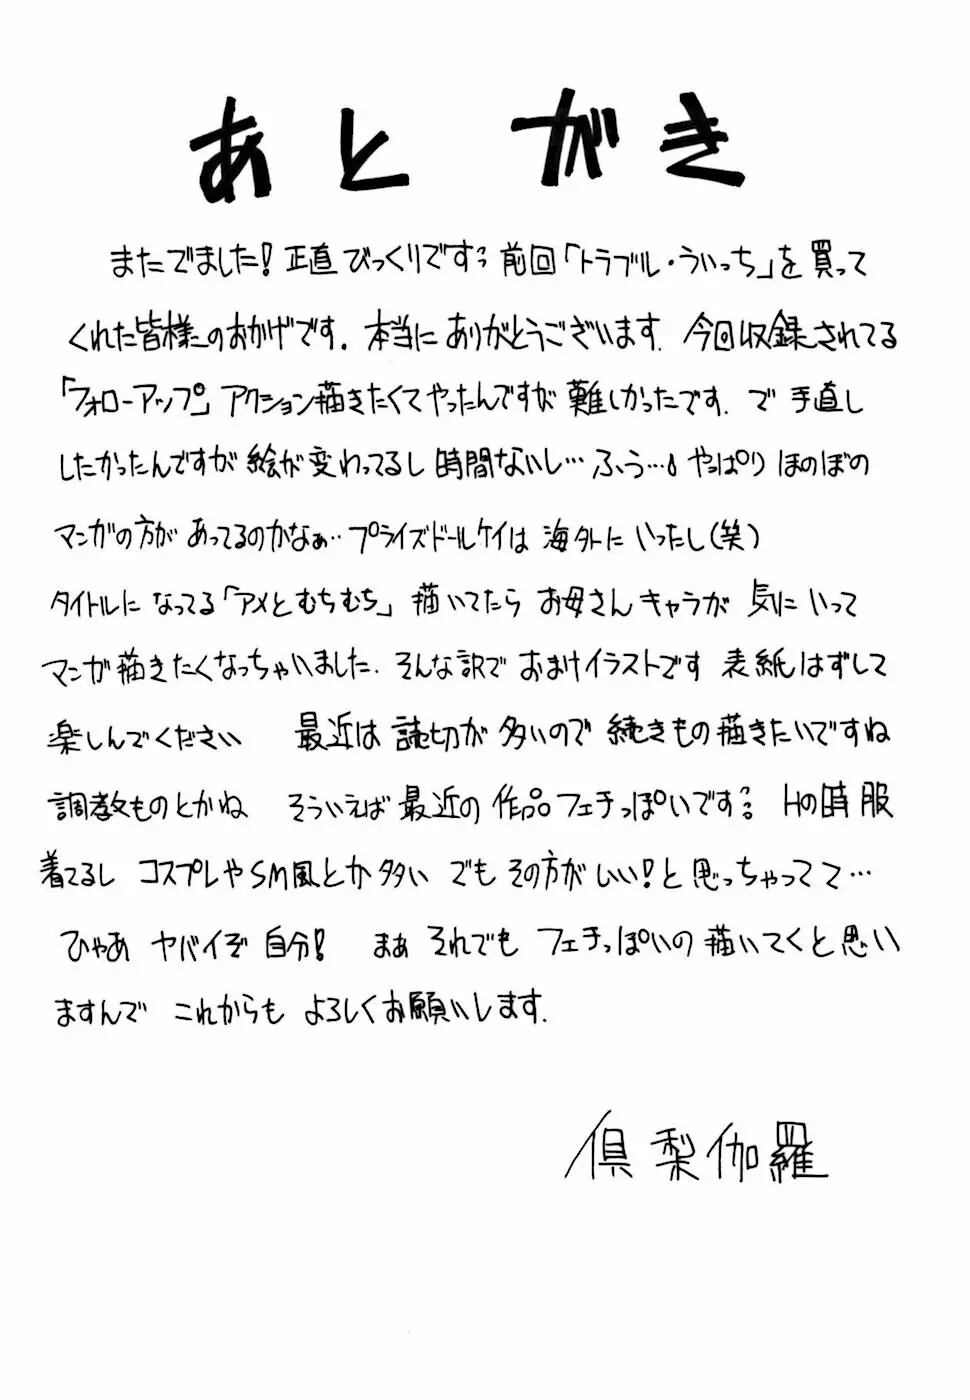 あとがき
またでました!正直びっくりです 前回「トラブル・ういっち」を買って
くれた皆様のおかげです。本当にありがとうございます. 今回収録されてる
「フォローアップ」アクション描きたくてやったんですが難しかったです. で 手直し
したかったんですが絵が変わってるし時間ないし…ふう… やっぱり ほのぼの
マンガの方が あってるのかなぁ… プライズドールケイは 海外に いったし(笑)
タイトルに なってる「アメとむちむち」 描いてたら お母さんキャラが 気に いって
マンガ描きたくなっちゃいました. そんな訳で おまけイラストです 表紙はずして
楽しんでください 最近は 読切が 多いので 続きもの描きたいですね
調教ものとかね そういえば最近の 作品フェチっぽいです Hの時服
着てるし コスプレやSM風とか多い でも その方がいい!と思っちゃってて…
ひゃあ ヤバイぞ 自分! まぁ それでも フェチっぽいの 描いてくと思い
ますんで これからも よろしくお願いします.
倶梨伽羅